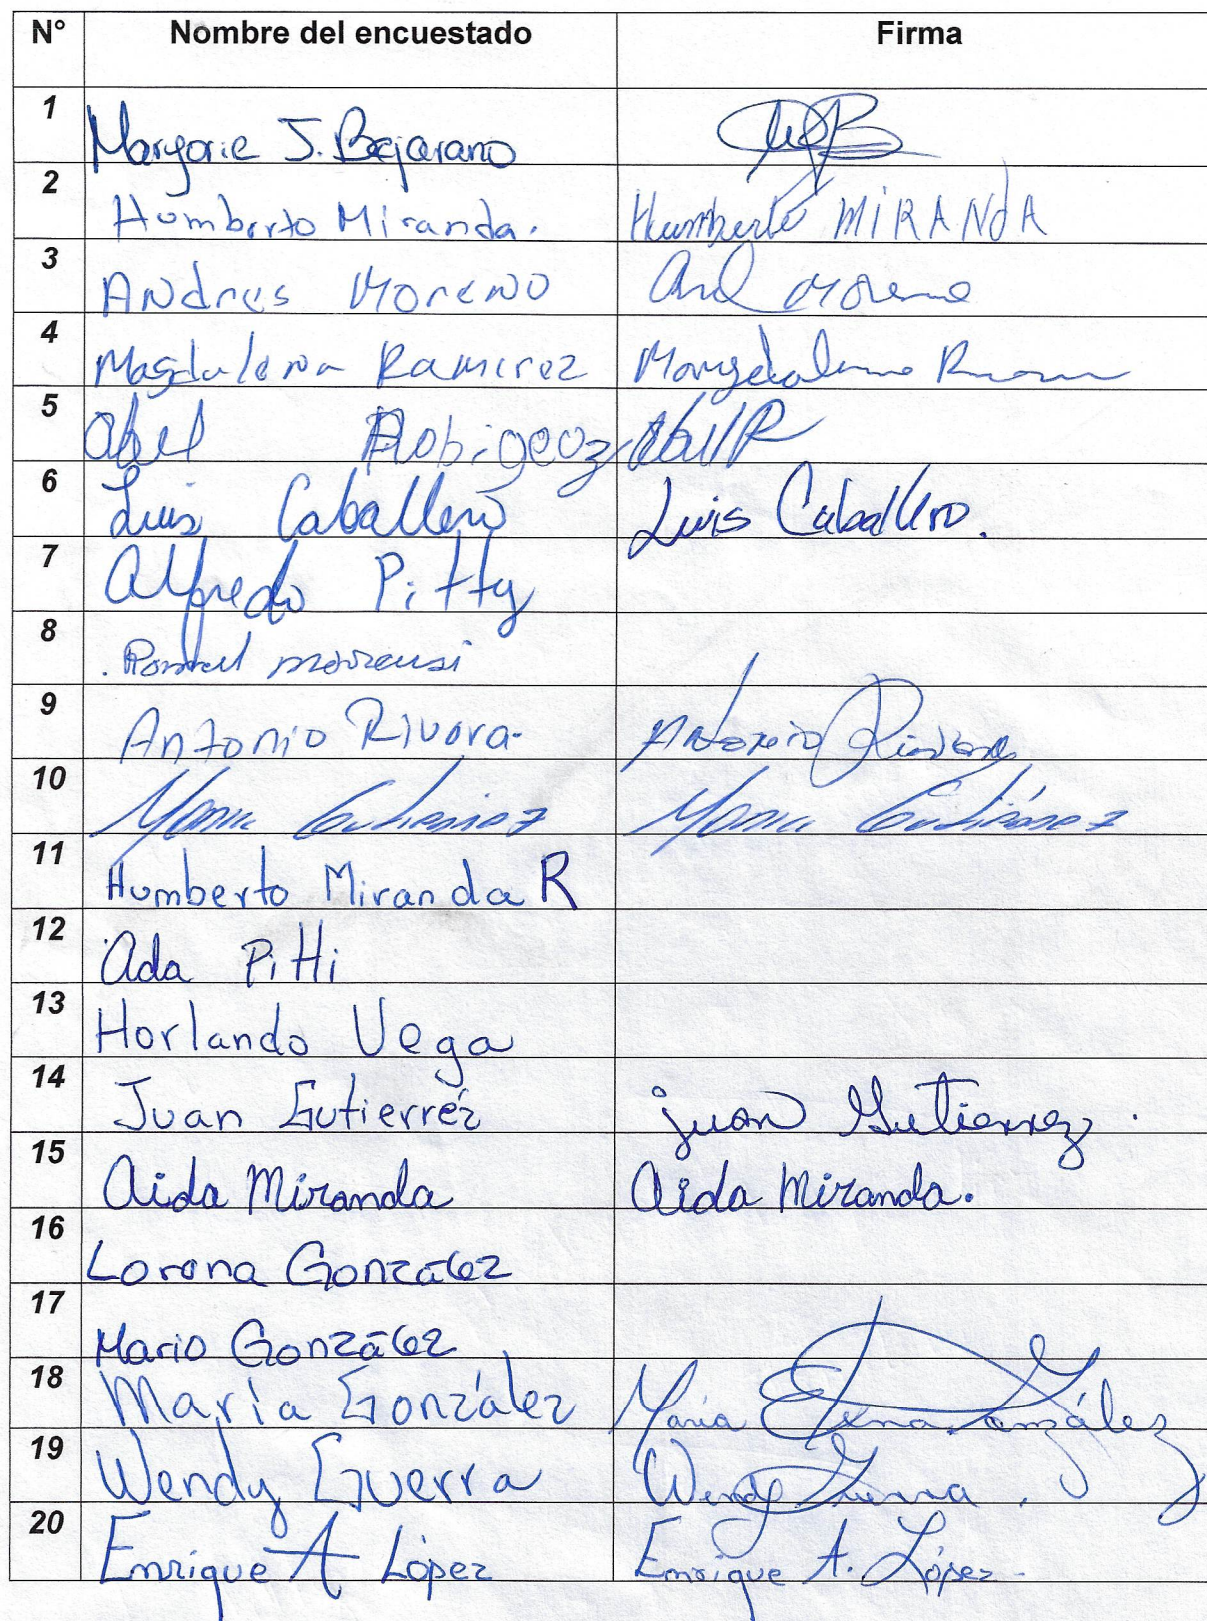 N° Nombre del encuestado Firma
1 Margorie J. Bejarano
2 Humberto Miranda. Humberto MIRANdA
3 ANdres MoreNO Moreno
4 Magdalena Ramirez Magdalena
5 Abel
6 Luis Caballero Luis Caballero.
7 Alfredo Pitty
8
9 Antonio Rivera Antonio
10 Gutierrez Gutiérrez
11 Humberto Miranda R
12 Ada Pitti
13 Horlando Vega
14 Juan Gutierrez juan Gutierrez.
15 Aida Miranda Aida Miranda.
16 Lorena González
17 Mario González
18 María González María Elena González
19 Wendy Guerra Wendy Guerra.
20 Enrique A López Enrique A. López